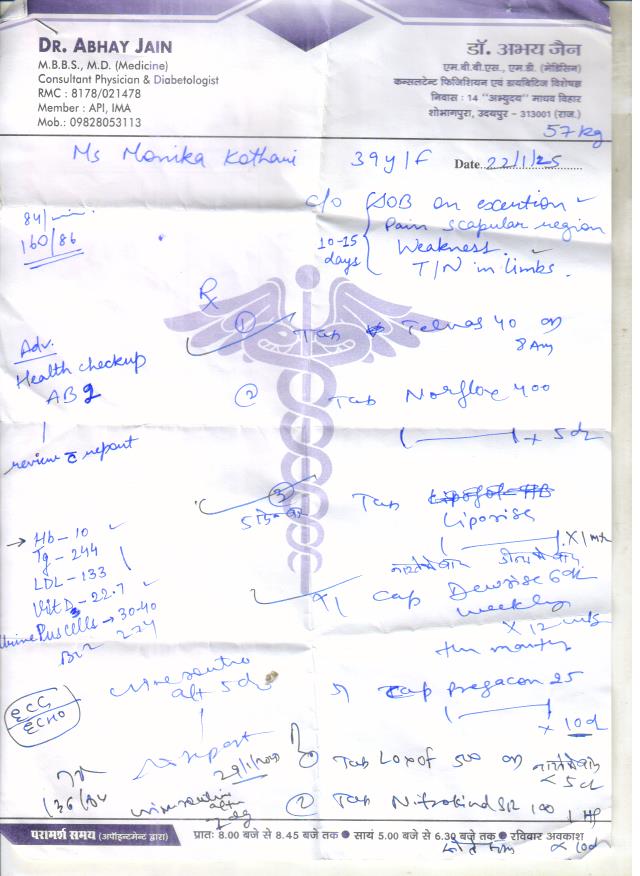 DR. ABHAY JAIN
M.B.B.S., M.D. (Medicine)
Consultant Physician & Diabetologist
RMC : 8178/021478
Member : API, IMA
Mob.: 09828053113
डॉ. अभय जैन
एम.बी.बी.एस., एम.डी. (मेडिसिन)
कन्सलटेन्ट फिजिशियन एवं डायबिटिज विशेषज्ञ
निवास : 14 "अभ्युदय" माधव विहार
शोभागपुरा, उदयपुर - 313001 (राज.)
57 kg
Ms Monika Kothari 39y/F Date 22/1/25
84/min.
160/86
c/o SOB on exertion
Pain scapular region
10-15 days
Weakness.
T/N in limbs.
Rx
① Tab Telvas 40 on
8 Am
Adv.
Health checkup
AB2
review c̄ report
② Tab Norflox 400
x 5d
③ Tab
Liporise
x 1 mt
नाश्ते के बाद
Hb - 10
Tg - 244
LDL - 133
Vit D3 - 22.7
Urine Pus cells → 30-40
B12 274
Cap 60k
weekly
x 12 wks
5) Cap Pregacon 25
x 10d
ECG
ECHO
Urine routine
aft 5d
report
① Tab Loxof 500 on नाश्ते के बाद
x 5d
② Tab Nitrokind SR 100 1 HS
x 10d
परामर्श समय (अपॉइन्टमेन्ट द्वारा) प्रातः 8.00 बजे से 8.45 बजे तक ● सायं 5.00 बजे से 6.30 बजे तक ● रविवार अवकाश